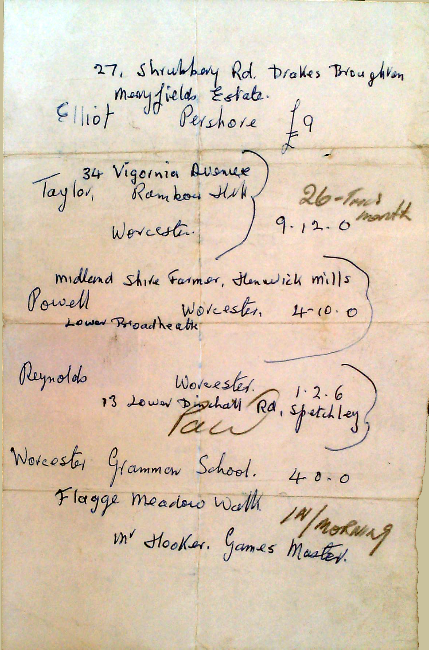 27, Shrubbery Rd. Drakes Broughton
Merryfields Estate.
Elliot Pershore £9
34 Vigornia Avenue
Taylor, Rainbow Hill
26-This month
Worcester. 9.12.0
Midland Shire Farmer, Henwick Mills
Powell Worcester. 4-10.0
Lower Broadheath
Reynolds Worcester. 1.2.6
13 Lower Rd, Spetchley
Paid
Worcester Grammar School. 4 0.0
Flagge Meadow Walk
IN/MORNING
Mr Hooker. Games Master.